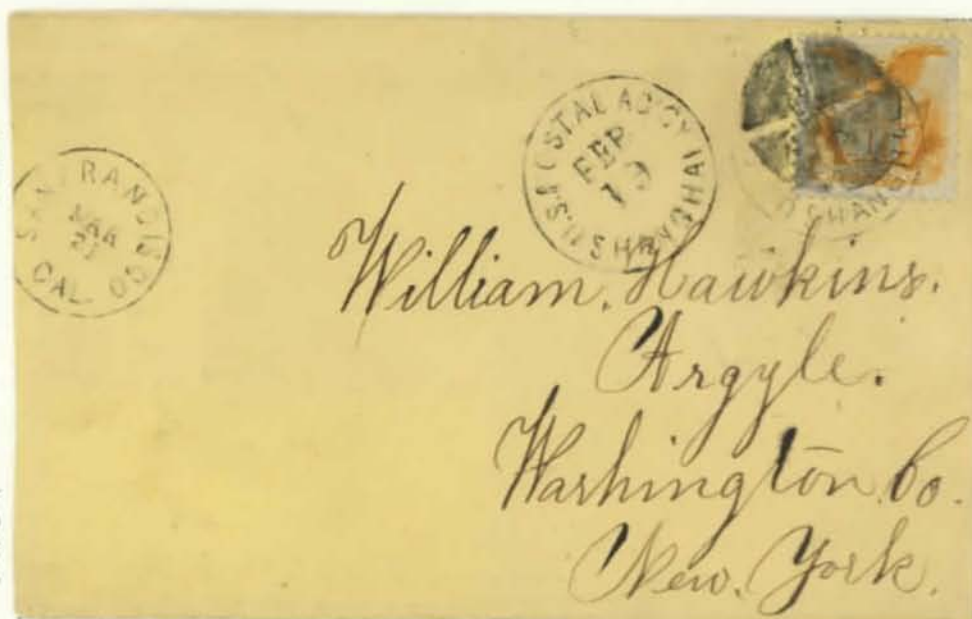 SAN FRANCISCO
MAR
21
CAL.
U.S. POSTAL AGCY
FEB
SHANGHAI
SHANGHAI
William. Hawkins.
Argyle.
Washington Co.
New. York.